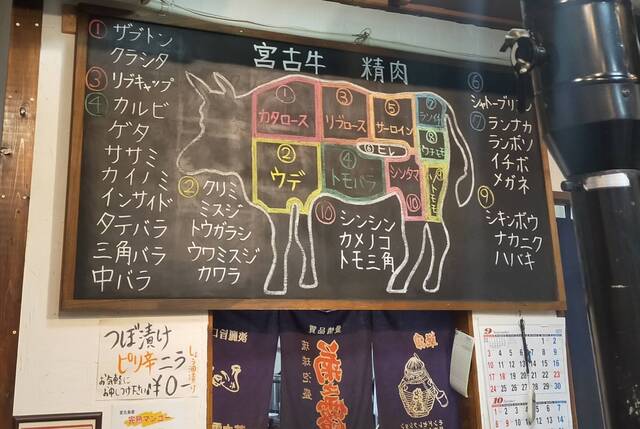 宮古牛 精肉
① ザブトン
クラシタ
③ リブキャップ
④ カルビ
ゲタ
ササミ
カイノミ
インサイド
タテバラ
三角バラ
中バラ
① カタロース
③ リブロース
⑤ サーロイン
⑦ ランイチ
⑥ ヒレ
⑧ ウチモモ
② ウデ
④ トモバラ
シンタマ ⑩
⑨ ソトモモ
② クリミ
ミスジ
トウガラシ
ウワミスジ
カワラ
⑩ シンシン
カメノコ
トモ三角
⑥ シャトーブリアン
⑦ ランナカ
ランボソ
イチボ
メガネ
⑨ シキンボウ
ナカニク
ハバキ
つぼ漬け
ピリ辛ニラ
しょう油漬け
お気軽に
お申しつけ下さい
¥0-
宮古島産
完熟マンゴー
琉球泡盛
9
10